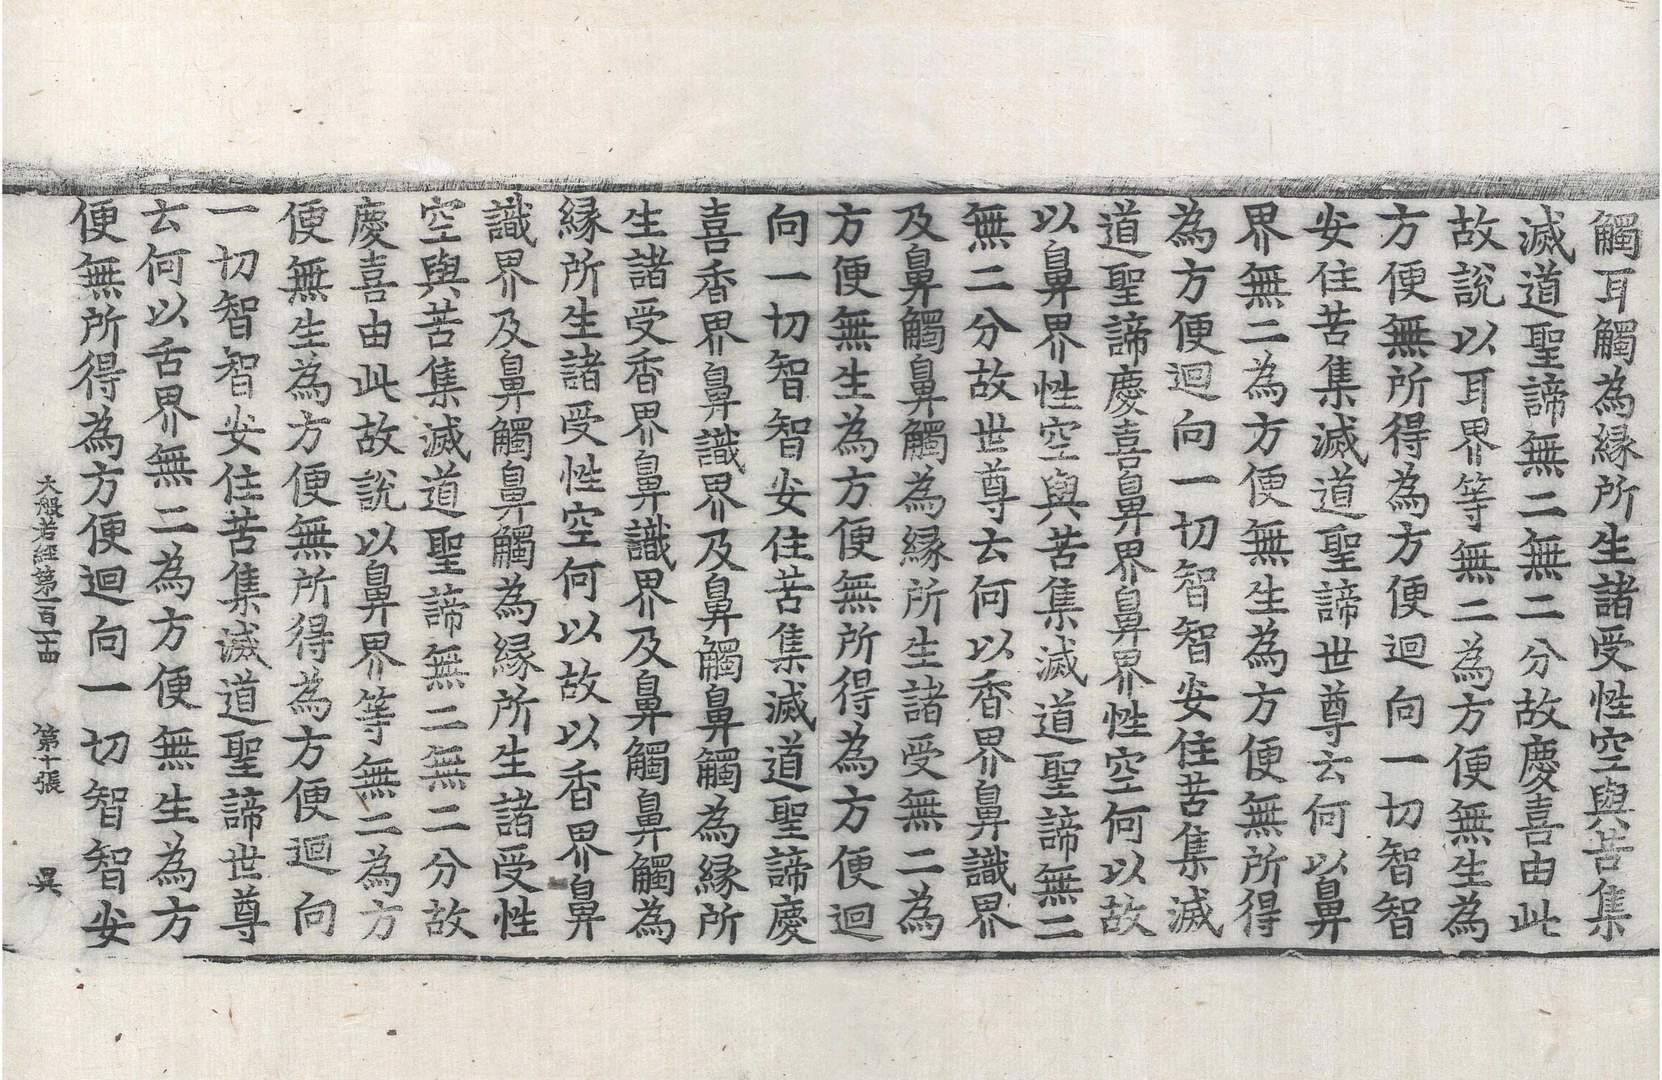 觸耳觸為緣所生諸受性空與苦集
滅道聖諦無二無二分故慶喜由此
故說以耳界等無二為方便無生為
方便無所得為方便迴向一切智智
安住苦集滅道聖諦世尊云何以鼻
界無二為方便無生為方便無所得
為方便迴向一切智智安住苦集滅
道聖諦慶喜鼻界鼻界性空何以故
以鼻界性空與苦集滅道聖諦無二
無二分故世尊云何以香界鼻識界
及鼻觸鼻觸為緣所生諸受無二為
方便無生為方便無所得為方便迴
向一切智智安住苦集滅道聖諦慶
喜香界鼻識界及鼻觸鼻觸為緣所
生諸受香界鼻識界及鼻觸鼻觸為
緣所生諸受性空何以故以香界鼻
識界及鼻觸鼻觸為緣所生諸受性
空與苦集滅道聖諦無二無二分故
慶喜由此故說以鼻界等無二為方
便無生為方便無所得為方便迴向
一切智智安住苦集滅道聖諦世尊
云何以舌界無二為方便無生為方
便無所得為方便迴向一切智智安
大般若經第一百一十四 第十張 昃